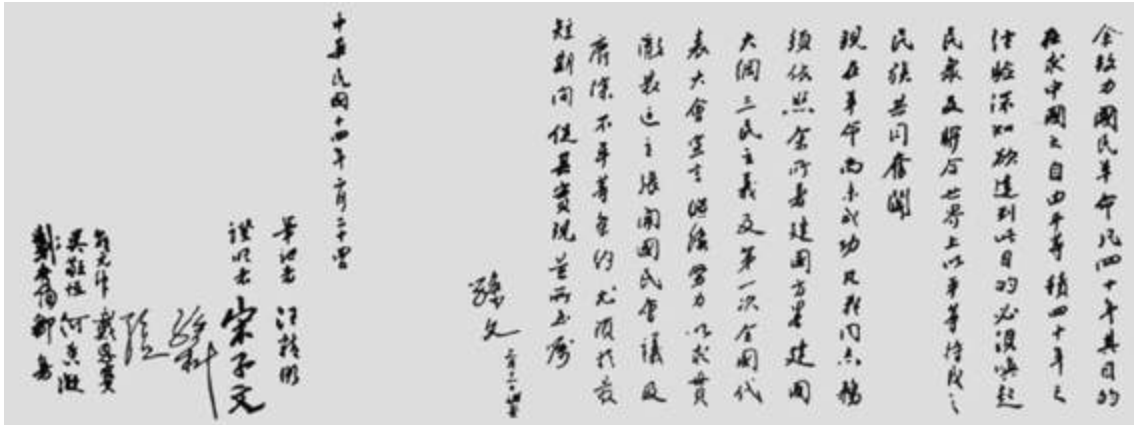 余致力國民革命凡四十年其目的
在求中國之自由平等積四十年之
經驗深知欲達到此目的必須喚起
民眾及聯合世界上以平等待我之
民族共同奮鬥
現在革命尚未成功凡我同志務
須依照余所著建國方略建國
大綱三民主義及第一次全國代
表大會宣言繼續努力以求貫
徹最近主張開國民會議及
廢除不平等條約尤須於最
短期間促其實現是所至囑
孫文
中華民國十四年二月二十四日
筆記者 汪精衛
證明者 宋子文
孫科
邵元沖 戴恩賽
吳敬恆 何香凝
鄒魯